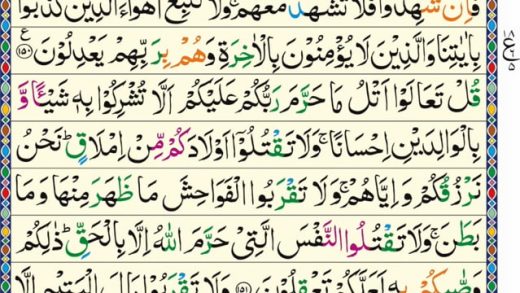 فَاِنْ شَهِدُوْا فَلَا تَشْهَدْ مَعَهُمْ ۚ وَلَا تَتَّبِعْ اَهْوَآءَ الَّذِيْنَ كَذَّبُوْا
بِاٰيٰتِنَا وَالَّذِيْنَ لَا يُؤْمِنُوْنَ بِالْاٰخِرَةِ وَهُمْ بِرَبِّهِمْ يَعْدِلُوْنَ ﴿۱۵۰﴾ ع
قُلْ تَعَالَوْا اَتْلُ مَا حَرَّمَ رَبُّكُمْ عَلَيْكُمْ اَلَّا تُشْرِكُوْا بِهٖ شَيْـًٔا وَّ
بِالْوَالِدَيْنِ اِحْسَانًا ۚ وَلَا تَقْتُلُوْۤا اَوْلَادَكُمْ مِّنْ اِمْلَاقٍ ؕ نَحْنُ
نَرْزُقُكُمْ وَاِيَّاهُمْ ۚ وَلَا تَقْرَبُوا الْفَوَاحِشَ مَا ظَهَرَ مِنْهَا وَمَا
بَطَنَ ۚ وَلَا تَقْتُلُوا النَّفْسَ الَّتِيْ حَرَّمَ اللّٰهُ اِلَّا بِالْحَقِّ ؕ ذٰلِكُمْ
وَصّٰىكُمْ بِهٖ لَعَلَّكُمْ تَعْقِلُوْنَ ﴿۱۵۱﴾ وَلَا تَقْرَبُوْا مَالَ الْيَتِيْمِ اِلَّا